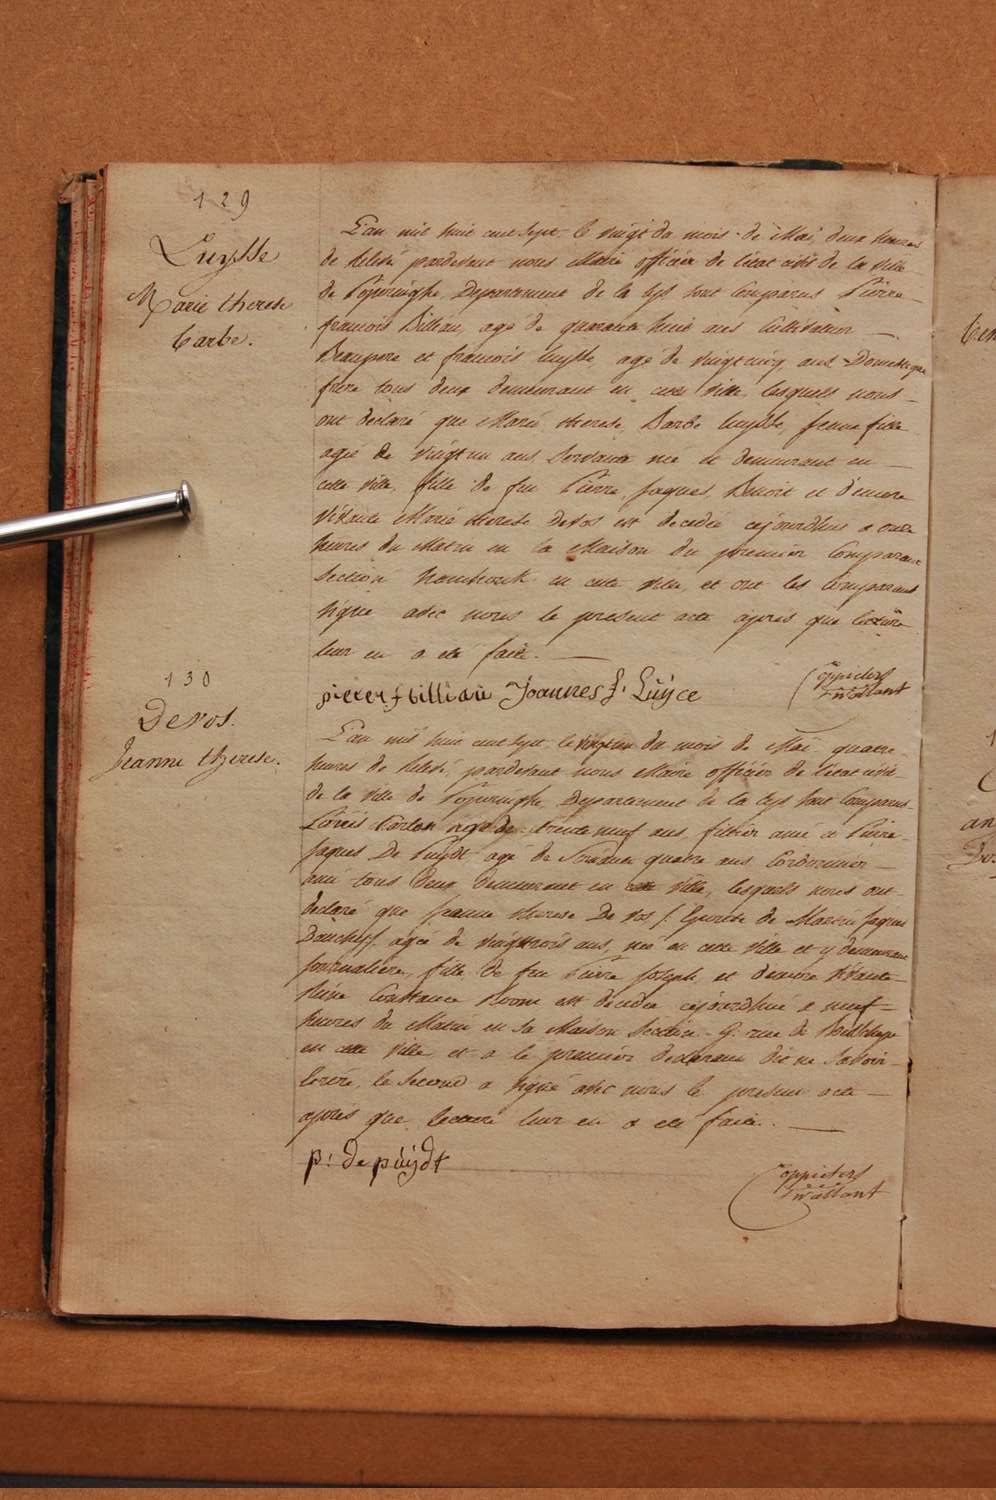 129
Luysse
Marie therese
barbe.
L'an mil huit cent sept, le vingt du mois de Mai, deux heures
de relevé pardevant nous Maire officier de l'état civil de la ville
de Poperinghe, Departement de la Lys sont Comparus Pierre
francois Billiau, agé de quarante huit ans Cultivateur
Beaupere et francois luysse, agé de vingt cinq ans Domestique
frere tous deux demeurant en cette ville, lesquels nous
ont declaré que Marie therese, Barbe luysse, jeune fille
agée de vingt un ans Servante née et demeurant en
cette ville, fille de feu Pierre, Jaques, Benoit et d'encore
vivante Marie therese Devos est decedée cejourdhui a onze
heures du Matin en la Maison du premier Comparant
Section en cette ville, et ont les Comparans
signé avec nous le present acte apres que lecture
leur en a eté faite.
pieter f billiau Joannes f. Luyce
130
Devos.
Jeanne therese.
L'an mil huit cent sept, le vingt un du mois de Mai quatre
heures de relevé, pardevant nous Maire officier de l'etat civil
de la ville de Poperinghe, Departement de la Lys sont Comparus
Louis Carton agé de trente neuf ans, filtier ami et Pierre
Jaques De Puydt agé de Soixante quatre ans Cordonnier
ami tous deux demeurant en cette ville, lesquels nous ont
declaré que Jeanne therese De vos /: Epouse de Martin Jaques
agée de vingt trois ans, née en cette ville et y demeurant
journaliere, fille de feu Pierre Joseph, et d'encore vivante
Constance est decedée cejourdhui a neuf
heures du Matin en sa Maison Section G. rue de
en cette ville et a le premier declarant dit ne savoir
ecrire, le second a signé avec nous le present acte
après que lecture leur en a eté faite.
p: de puydt